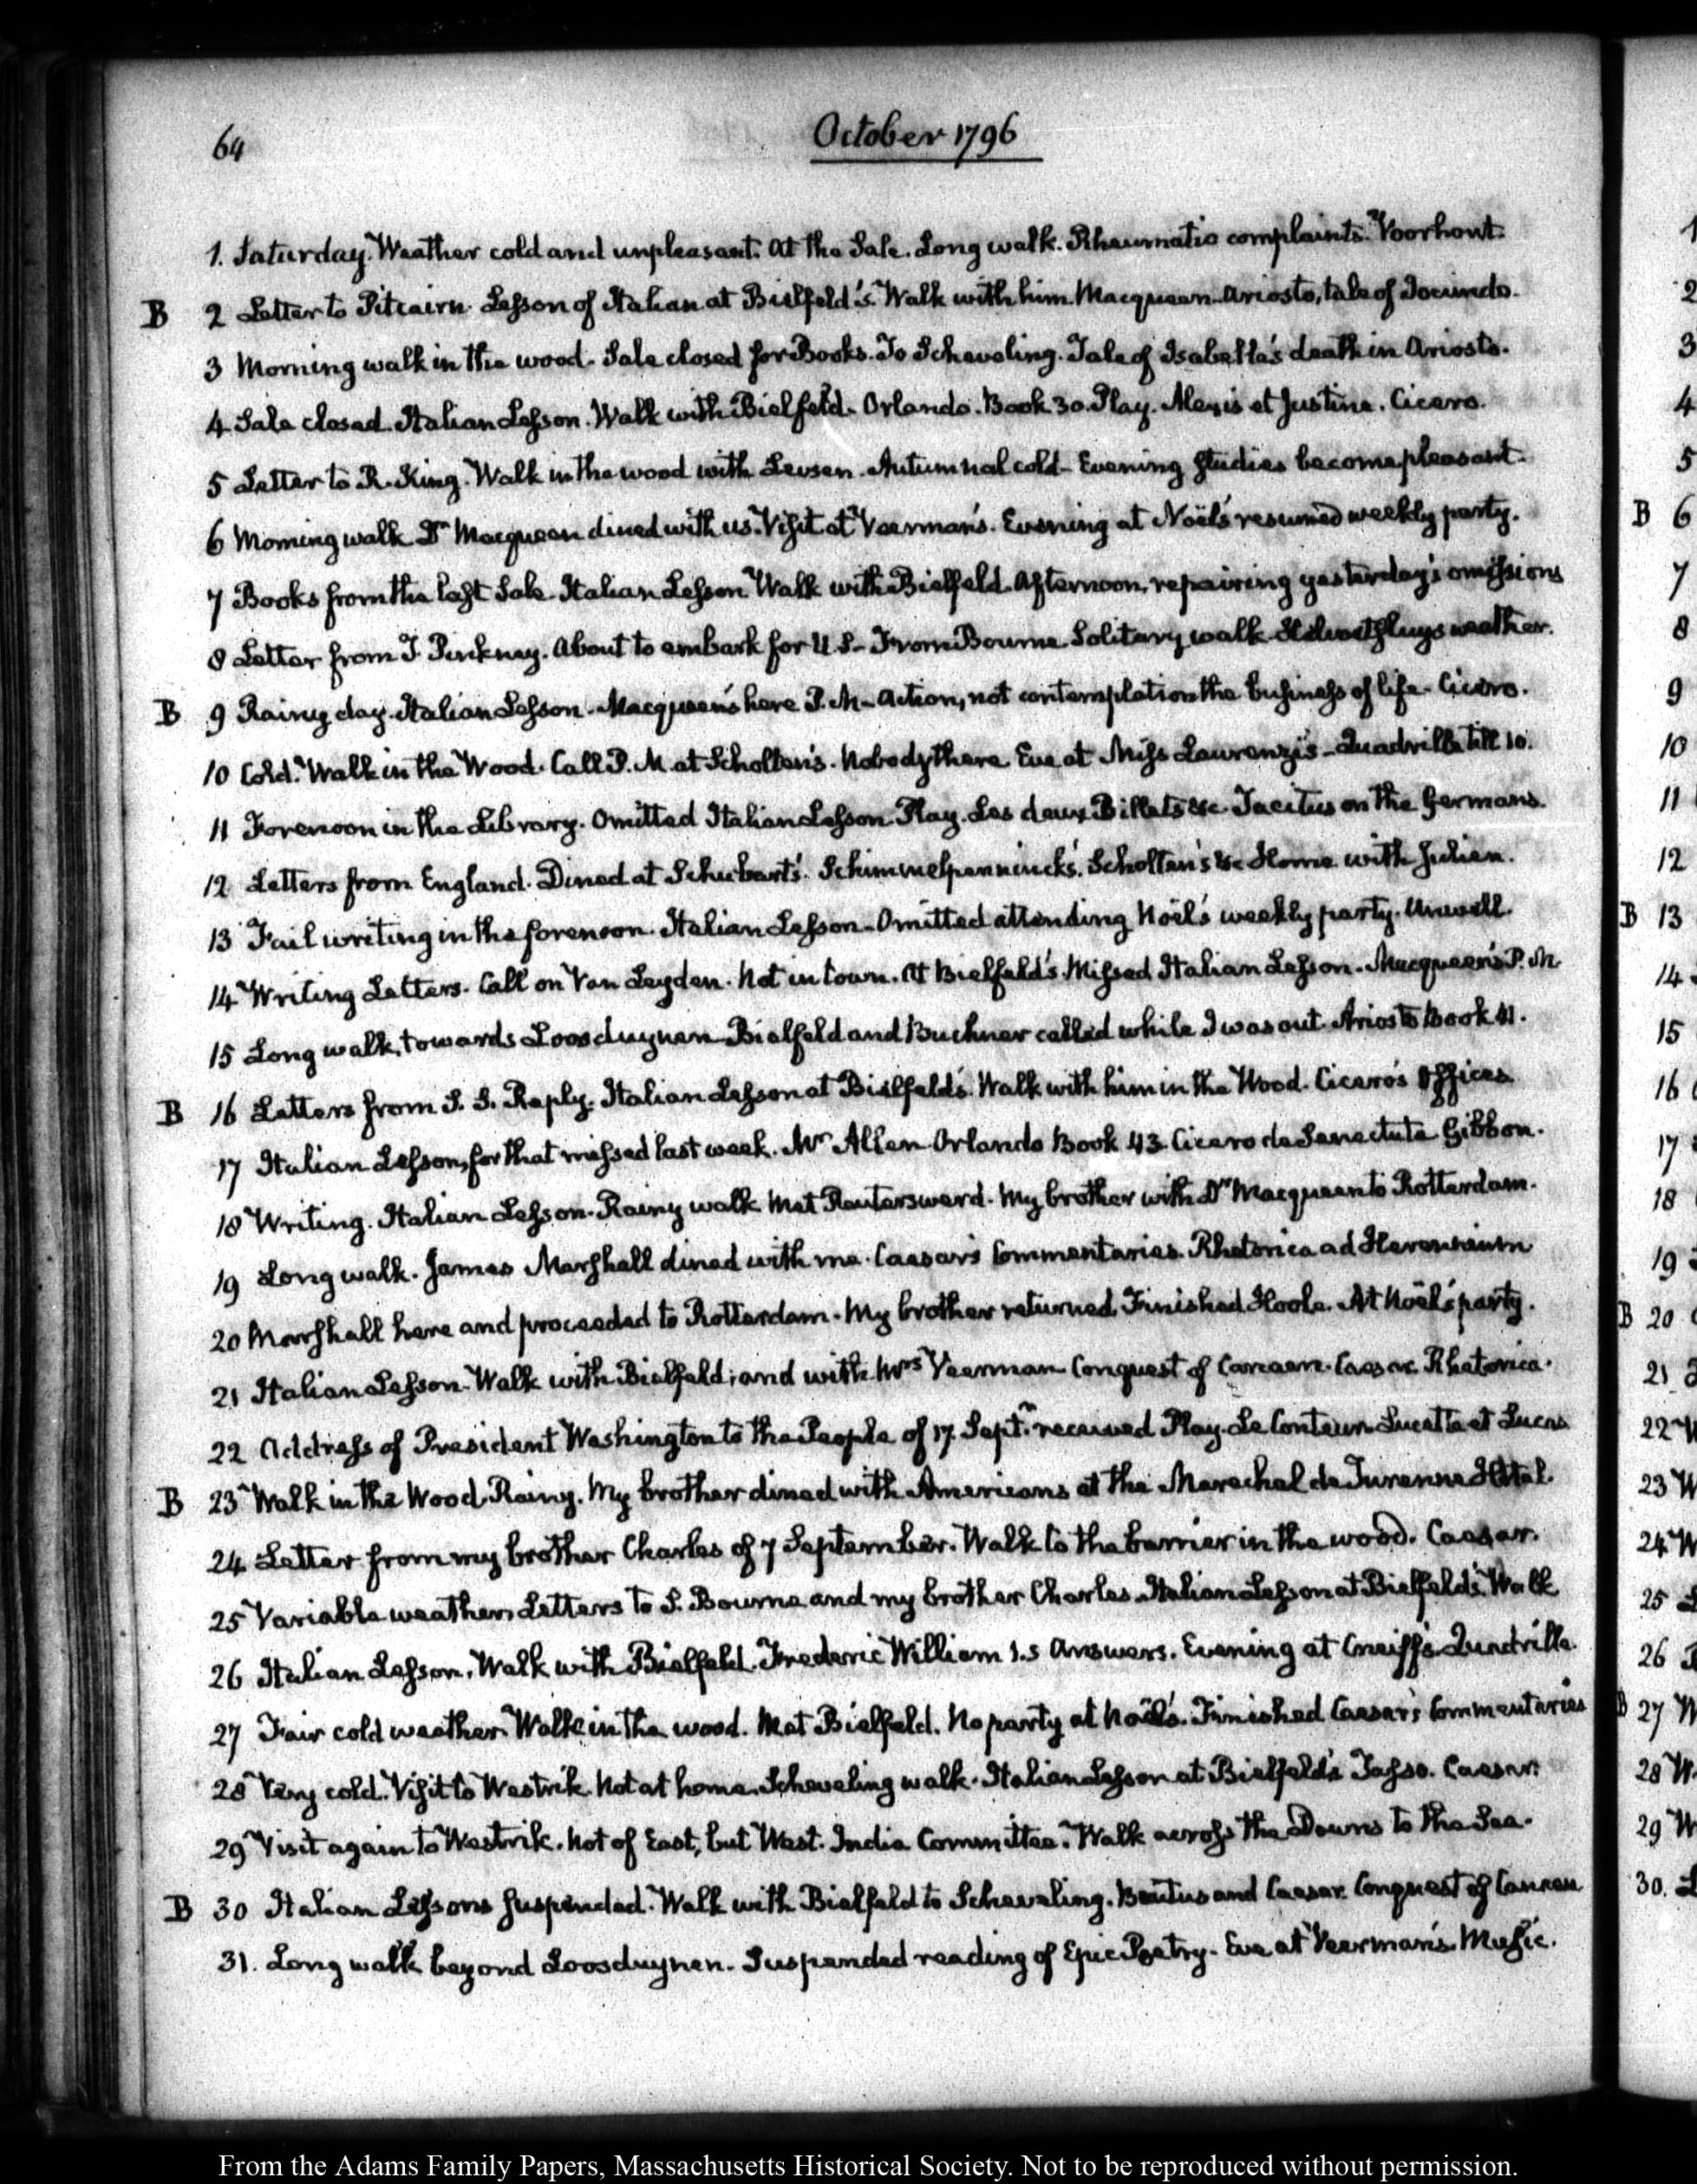 64
October 1796
1. Saturday. Weather cold and unpleasant. At the Sale. Long walk. Rheumatic complaints. Voorhout.
B 2 Letter to Pitcairn. Lesson of Italian at Bielfeld's. Walk with him. Macqueen. Ariosto, tale of Jocundo.
3 Morning walk in the wood. Sale closed for Books. To Scheveling. Tale of Isabella's death in Ariosto.
4 Sale closed. Italian Lesson. Walk with Bielfeld. Orlando. Book 30. Play. Alexis et Justine. Cicero.
5 Letter to R. King. Walk in the wood with Levsen. Autumnal cold. Evening studies become pleasant.
6 Morning walk Dr Macqueen dined with us. Visit at Veerman's. Evening at Noël's resumed weekly party.
7 Books from the last Sale. Italian Lesson Walk with Bielfeld. Afternoon, repairing yesterday's omissions
8 Letter from T. Pinkney. About to embark for U.S. From Bourne. Solitary walk. weather.
B 9 Rainy day. Italian Lesson. Macqueen's here P.M. Action, not contemplation the business of life. Cicero.
10 Cold. Walk in the Wood. Call P.M. at Scholten's. Nobody there Eve at Miss Laurenzi's. Quadrille till 10.
11 Forenoon in the Library. Omitted Italian Lesson. Play. Les deux Billets &c. Tacitus on the Germans.
12 Letters from England. Dined at Schubart's. Schimmelpenninck's. Scholten's &c Home with Julien.
13 Fail writing in the forenoon. Italian Lesson. Omitted attending Noël's weekly party. Unwell.
14 Writing Letters. Call on Van Leyden. Not in town. At Bielfeld's. Missed Italian Lesson. Macqueen's P.M
15 Long walk, towards Loosduynen. Bielfeld and Buchner called while I was out. Ariosto Book 41.
B 16 Letters from S. S. Reply. Italian Lesson at Bielfeld's. Walk with him in the Wood. Cicero's Offices.
17 Italian Lesson, for that missed last week. Mr Allen Orlando Book 43. Cicero de Senectute Gibbon.
18 Writing. Italian Lesson. Rainy walk Met Reutersward. My brother with Dr Macqueen to Rotterdam.
19 Long walk. James Marshall dined with me. Caesar's Commentaries. Rhetorica ad Herennium
20 Marshall here and proceeded to Rotterdam. My brother returned. Finished Hoole. At Noël's party.
21 Italian Lesson. Walk with Bielfeld; and with Mrs Veerman Conquest of Canaan. Caesar. Rhetorica.
22 Address of President Washington to the People of 17. Septr. received Play. Le Conteur. Lucette et Lucas
B 23 Walk in the Wood. Rainy. My brother dined with Americans at the Marechal de Turenne Hotel.
24 Letter from my brother Charles of 7 September. Walk to the barrier in the wood. Caesar.
25 Variable weather. Letters to S. Bourne and my brother Charles. Italian Lesson at Bielfeld's. Walk
26 Italian Lesson. Walk with Bielfeld. Frederic William 1.s Answers. Evening at Craeiff's Quadrille.
27 Fair cold weather. Walk in the wood. Met Bielfeld. No party at Noël's. Finished Caesar's Commentaries
28 Very cold. Visit to Westrik. Not at home. Scheveling walk. Italian Lesson at Bielfeld's Tasso. Caesar.
29 Visit again to Westrik. Not of East, but West. India Committee. Walk across the Downs to the Sea.
B 30 Italian Lessons suspended. Walk with Bielfeld to Scheveling. Brutus and Caesar. Conquest of Canaan
31. Long walk beyond Loosduynen. Suspended reading of Epic Poetry. Eve at Veerman's. Music.
From the Adams Family Papers, Massachusetts Historical Society. Not to be reproduced without permission.